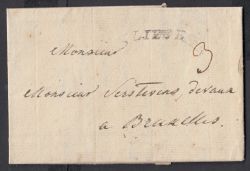 LIER
3
Monsieur
Monsieur Serstevens, devaux
a Bruxelles.